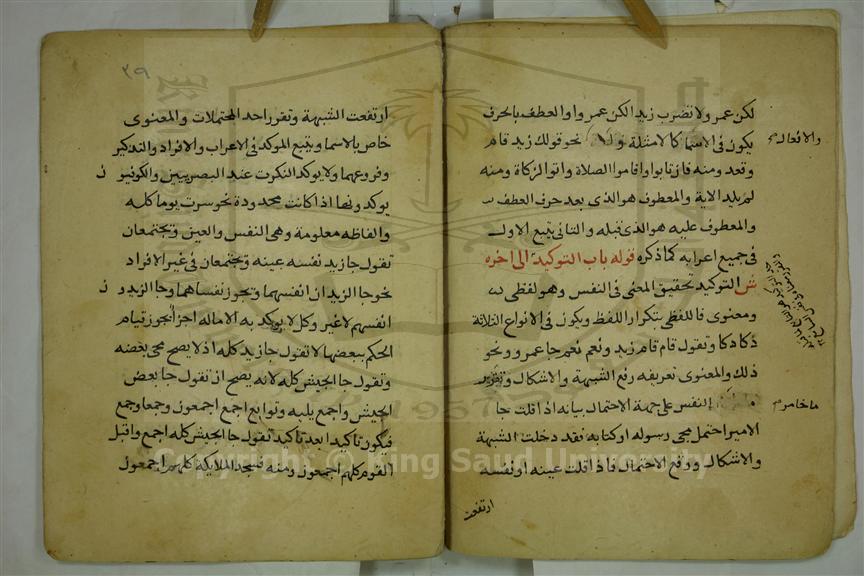 لكن عمر ولا تضرب زيد الكن عمر واو العطف بالحرف
يكون في الاسما كالامثلة نحو قولك زيد قام
والافعال
وقعد ومنه فاز تابوا واقاموا الصلاة واتوا الزكاة ومنه
لم يلد الاية والمعطوف هو الذي بعد حرف العطف
والمعطوف عليه هو الذي قبله والثاني يتبع الاول
في جميع اعرابه كما ذكره قوله باب التوكيد الى اخره
ش التوكيد تحقيق المعنى في النفس وهو لفظي
ومعنوي فاللفظي بتكرار اللفظ ويكون في الانواع الثلاثة
دكا دكا وتقول قام قام زيد ونعم نعم جا عمرو ونحو
ذلك والمعنوي تعريفه رفع الشبهة والاشكال وتقرير
النفس على جهة الاحتمال بيانه اذا قلت جا
ما خامر
الامير احتمل مجي رسوله او كتابه فقد دخلت الشبهة
والاشكال ووقع الاحتمال فاذا قلت عينه او نفسه
ارتفعت
٣٩
ارتفعت الشبهة وتقرر احد المحتملات والمعنوي
خاص بالاسما ويتبع الموكد في الاعراب والافراد والتذكير
وفروعهما ولا يوكد النكرت عند البصريين والكوفيو ن
يوكدونها اذا كانت محدودة نحو سرت يوما كله
والفاظه معلومة وهي النفس والعين ويجتمعان
تقول جا زيد نفسه عينه ويجتمعان في غير الافراد
نحو جا الزيدان انفسهما ويجوز نفساهما وجا الزيدو ن
انفسهم لا غير وكل لا يوكد به الا ماله اجزا يجوز قيام
الحكم ببعضها لا تقول جا زيد كله اذ لا يصح مجي بعضه
وتقول جا الجيش كله لانه يصح ان تقول جا بعض
الجيش واجمع يليه وتوابع اجمع اجمعون وجمعا وجمع
فيكون تاكيدا بعد تاكيد تقول جا الجيش كله اجمع واقبل
القوم كلهم اجمعون ومنه فسجد الملايكة كلهم اجمعون
Copyright © King Saud University
1957